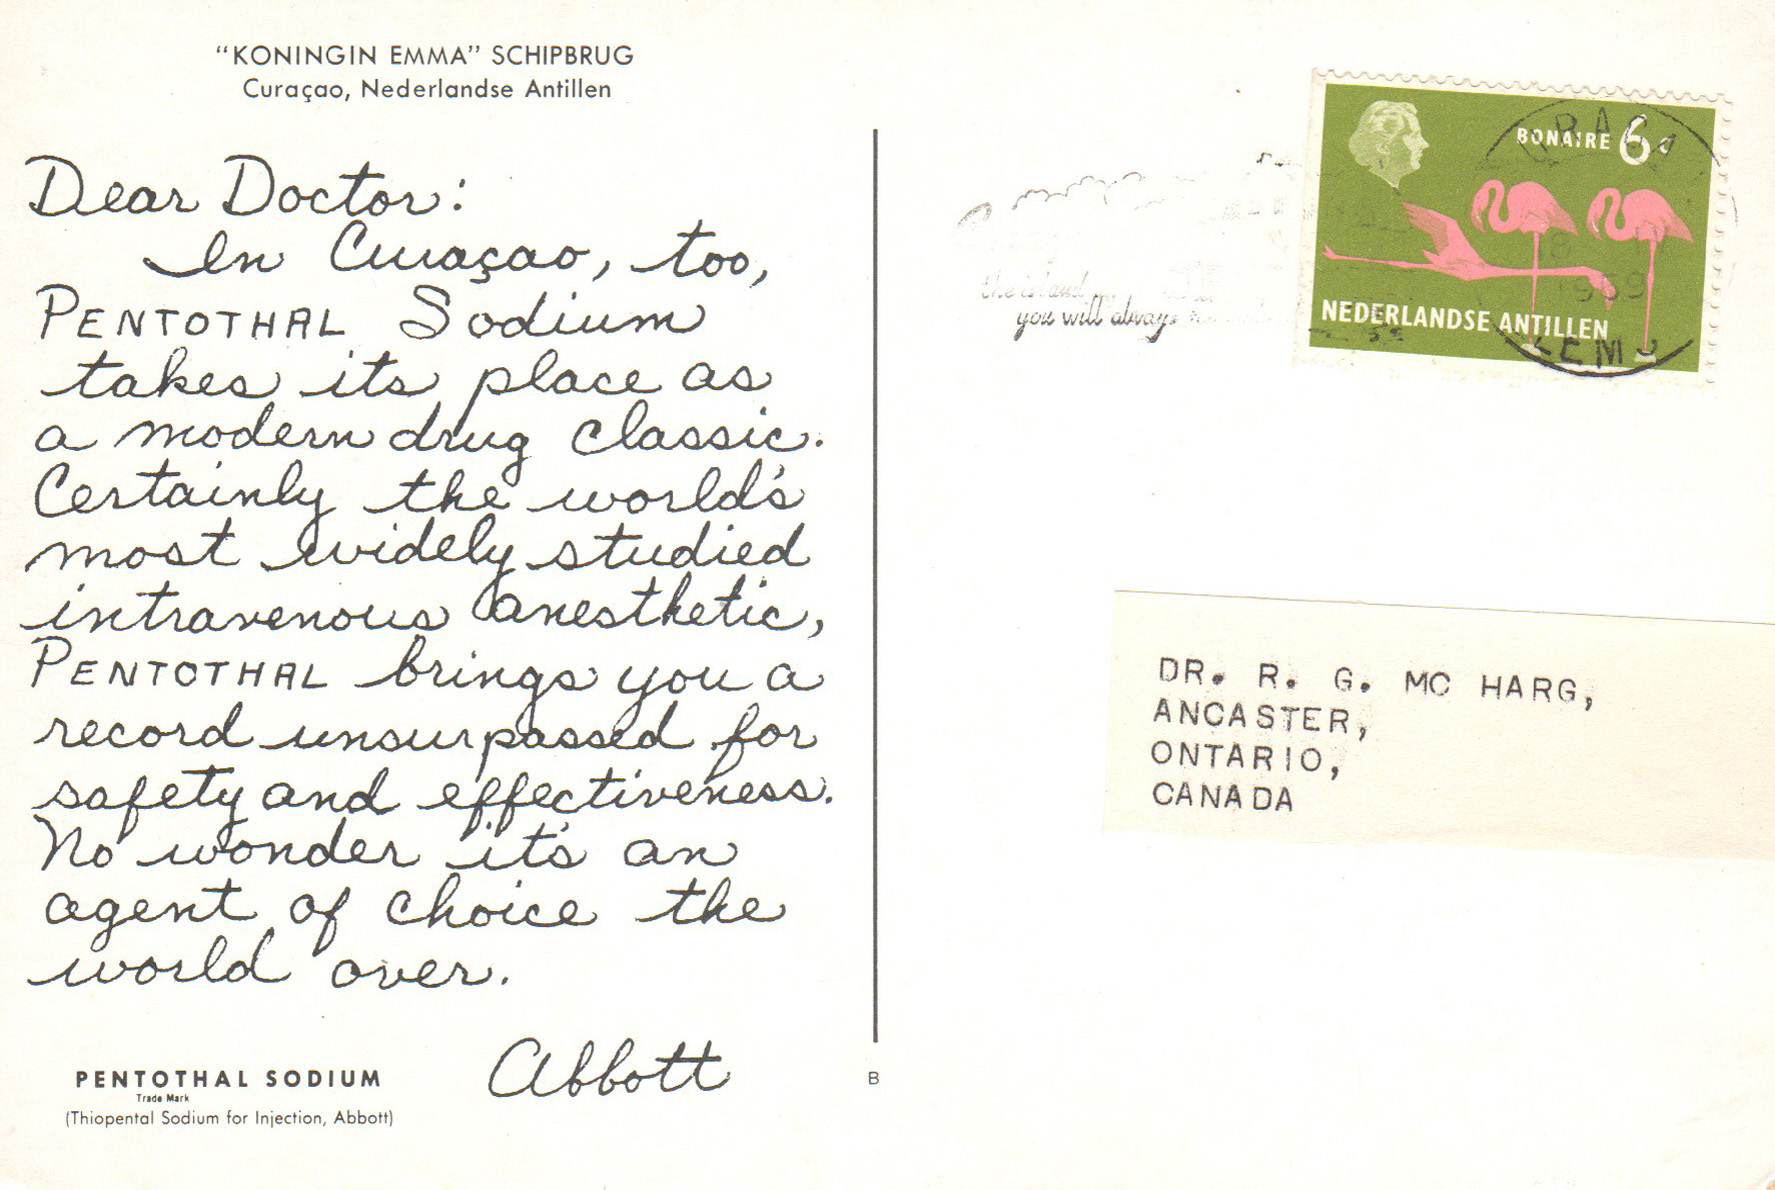 "KONINGIN EMMA" SCHIPBRUG
Curaçao, Nederlandse Antillen
Dear Doctor:
In Curaçao, too,
PENTOTHAL Sodium
takes its place as
a modern drug classic.
Certainly the world's
most widely studied
intravenous anesthetic,
PENTOTHAL brings you a
record unsurpassed for
safety and effectiveness.
No wonder it's an
agent of choice the
world over.
Abbott
PENTOTHAL SODIUM
Trade Mark
(Thiopental Sodium for Injection, Abbott)
B
BONAIRE 6 c
NEDERLANDSE ANTILLEN
1959
the island
you will always
DR. R. G. MC HARG,
ANCASTER,
ONTARIO,
CANADA